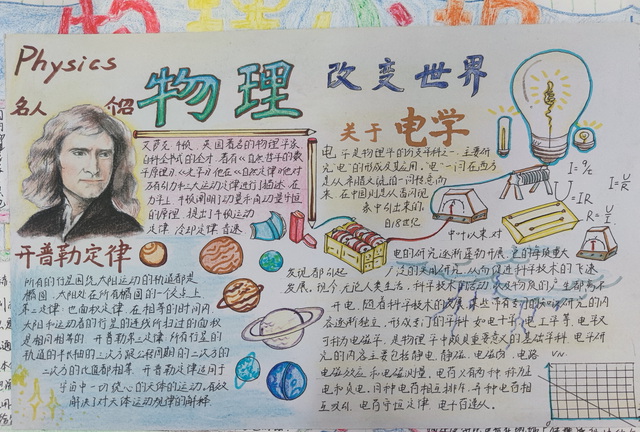 Physics
物理 改变世界
名人 介绍
艾萨克 牛顿，英国著名的物理学家
百科全书式的全才，著有《自然哲学的数
学原理》《光学》他在《自然定律》他对
万有引力和三大运动定律进行描述，在
力学上，牛顿阐明了动量和角动量守恒
的原理，提出了牛顿运动
定律，冷却定律，音速
开普勒定律
所有的行星围绕太阳运动的轨道都是
椭圆，太阳处在所有椭圆的一个焦点上
第二定律：也面积定律，在相等的时间内
太阳和运动着的行星的连线所扫过的面积
是相同相等的 开普勒第三定律：所有行星的
轨道的半长轴的三次方跟公转周期的二次方的
二次方的比值都相等 开普勒定律适用于
宇宙中一切绕心的天体的运动，有效
解决了对天体运动规律的解释
关于 电学
电学是物理学的分支学科之一，主要研
究"电"的形成及应用，"电"一词在西方
是从希腊文琥珀一词转意而
来，在中国则是从雷闪现
象中引出来的，
自18世纪
中叶以来对
电的研究逐渐蓬勃开展，它的每项重大
发现都引起广泛的实用研究，从而促进科学技术的飞速
发展，现今无论人类生活，科学技术活动以及物质的产生都离不
开电，随着科学技术的发展，某些带有专门知识的研究的内
容逐渐独立，形成专门的学科，如电子学，电工学等，电学又
可称为电磁学，是物理学中颇具重要意义的基础学科，电学研
究的内容主要包括静电，静磁，电磁场，电路
电磁效应和电磁测量，电荷又有两种，称为正
电和负电，同种电荷相互排斥，异种电荷相
互吸引，电荷守恒定律，电子百速从。
I=q/t
I=U/R
U=IR
R=U/I